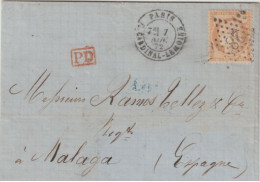 PARIS
CARDINAL-LEMOINE
PD
Messieurs Ramos Tellez & Cie
Negts
à Malaga (Espagne)